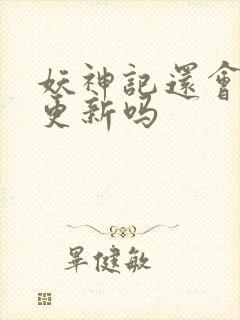 妖神記還會
更新吗
畢健敏